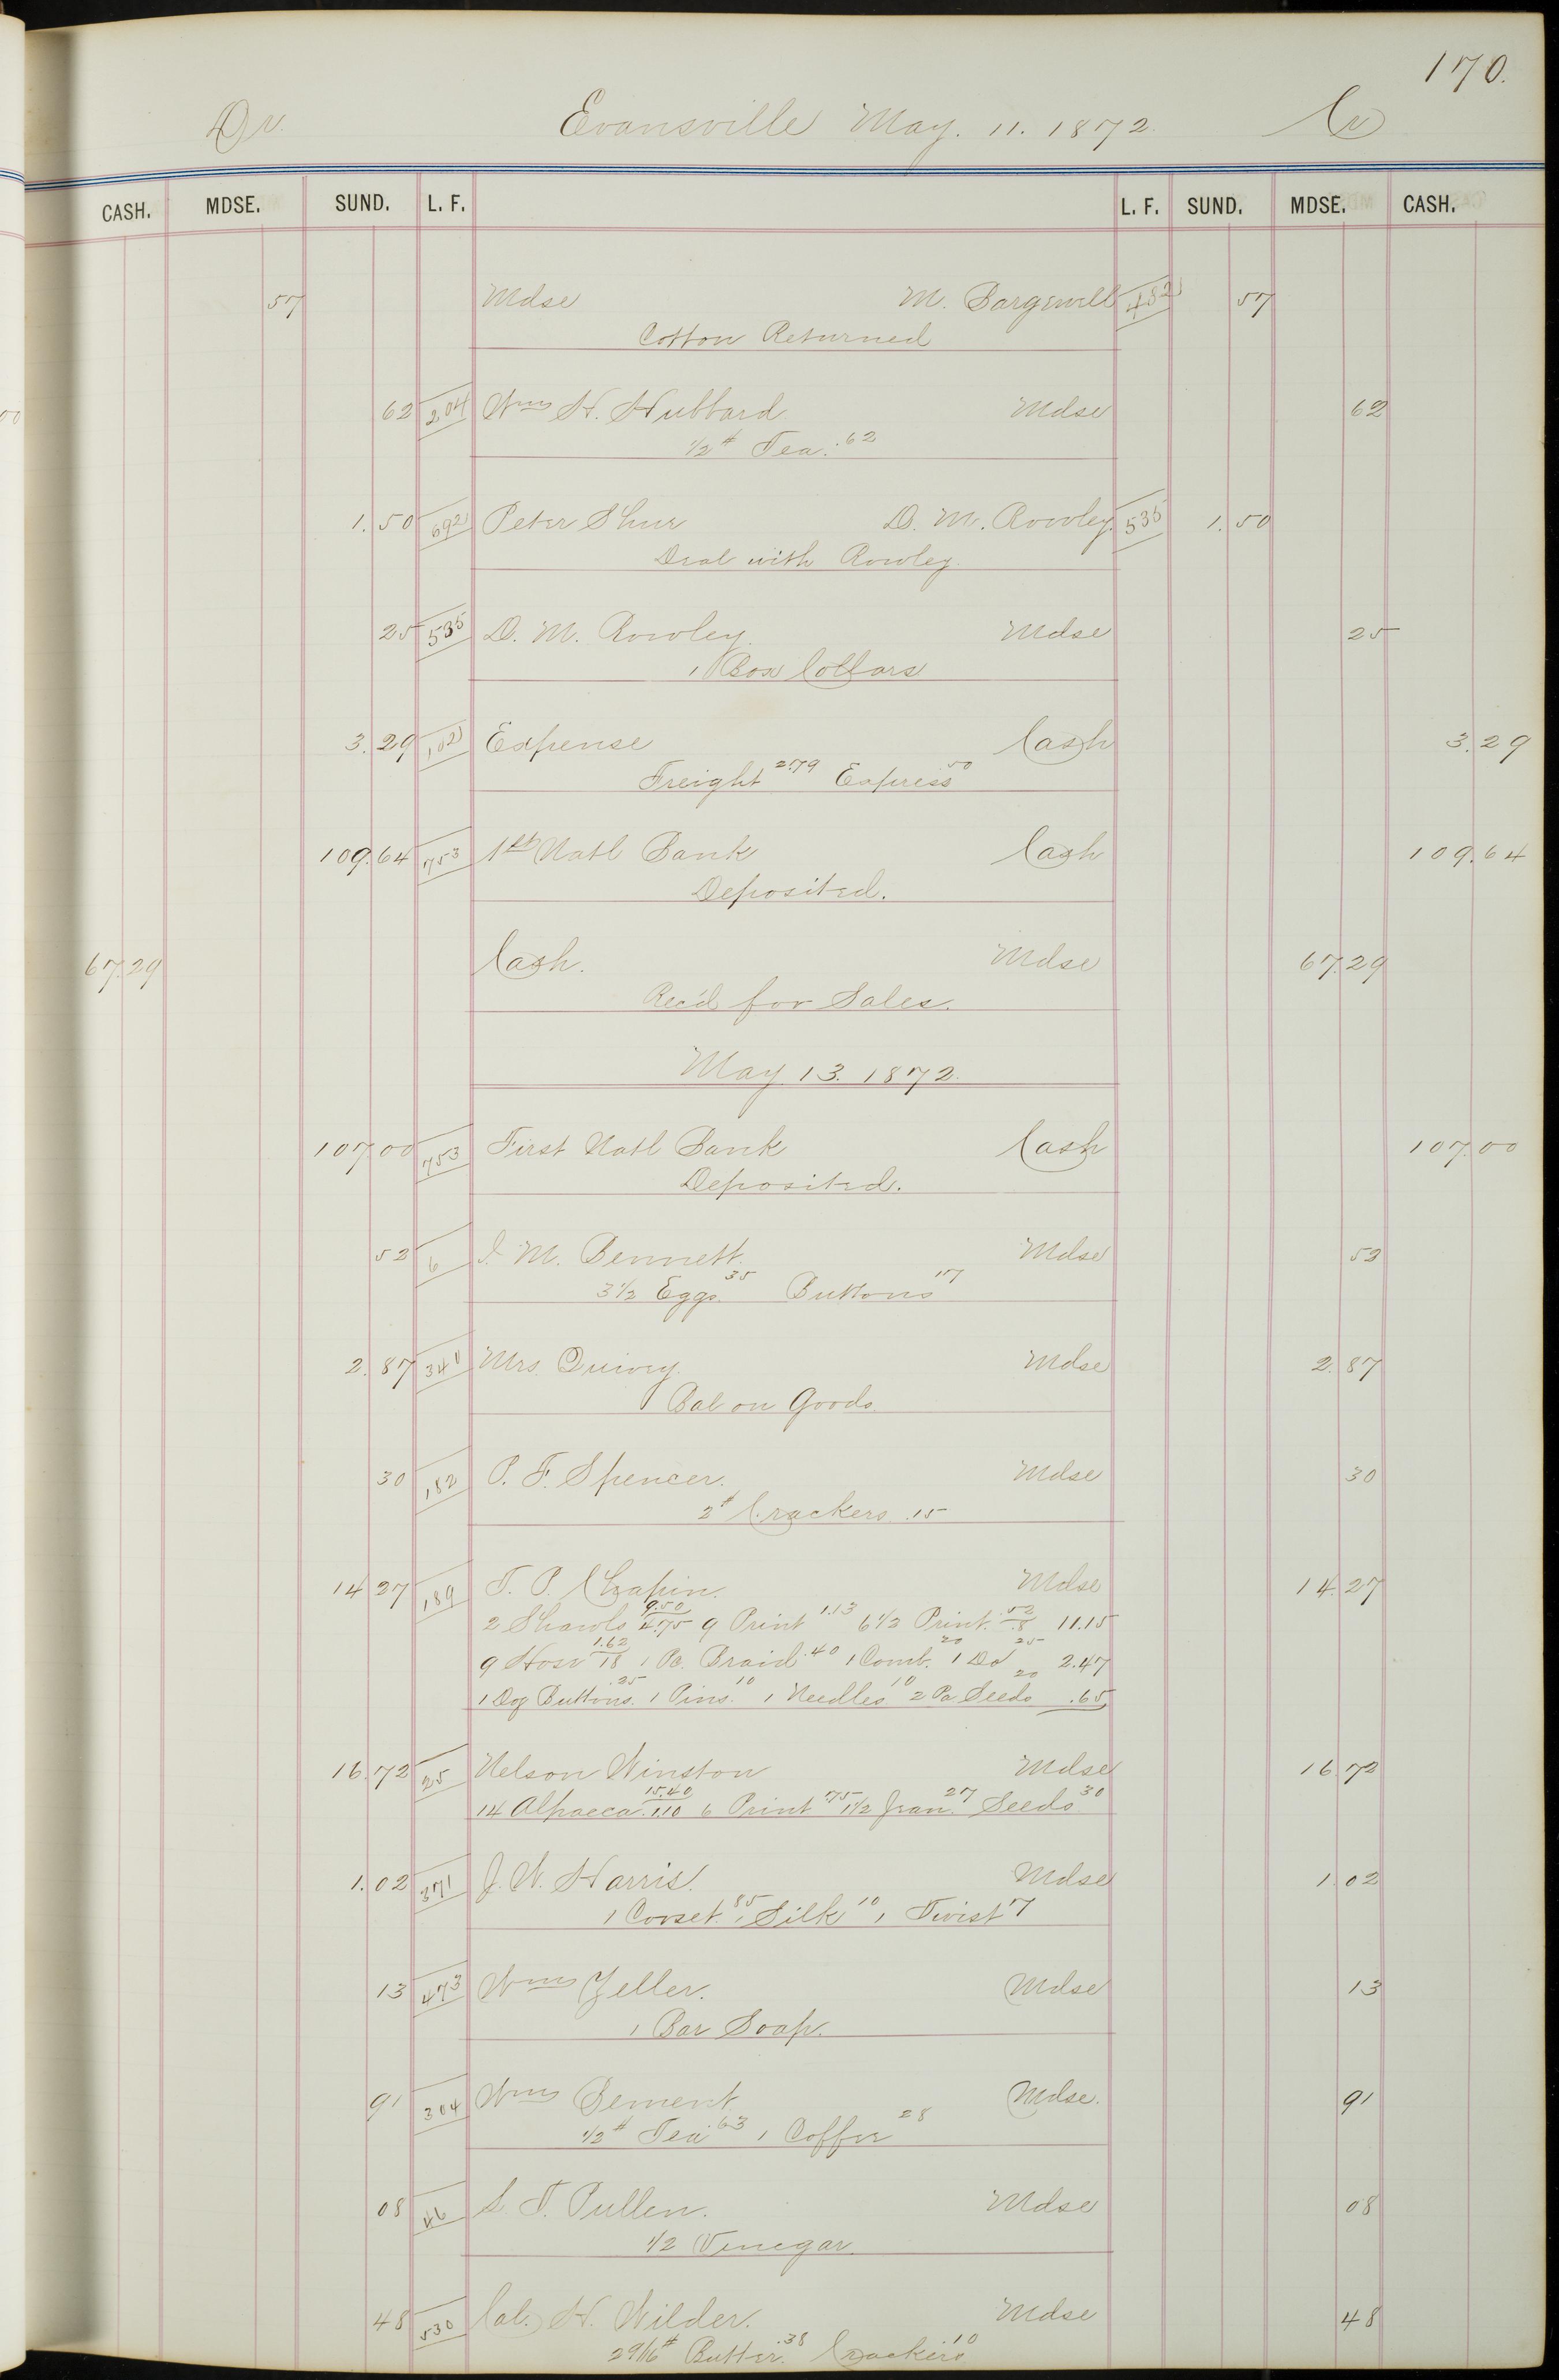 170.
Dr. Evansville May. 11. 1872. Cr
CASH. MDSE. SUND. L. F. L. F. SUND. MDSE. CASH.
57 Mdse M. Bargewell 482 57
Cotton Returned
62 204 Wm H. Hubbard Mdse 62
1/2 # Tea. .62
1.50 692 Peter Shur D. M. Rowley. 535 1.50
Deal with Rowley.
25 535 D. M. Rowley. Mdse 25
1 Box Collars
3.29 102 Expense Cash 3.29
Freight 2.79 Express 50
109.64 753 1st Natl Bank Cash 109.64
Deposited.
67.29 Cash. Mdse 67.29
Rec'd for Sales.
May. 13. 1872.
107.00 753 First Natl Bank Cash 107.00
Deposited.
52 6 I. M. Bennett. Mdse 52
3 1/2 Eggs. 35 Buttons 17
2.87 340 Mrs. Quivey. Mdse 2.87
Bal on Goods.
30 182 P. F. Spencer. Mdse 30
2 # Crackers. .15
14 27 189 T. P. Chapin. Mdse 14.27
2 Shawls 9.50 4.75 9 Print 1.13 6 1/2 Print. .52 .8 11.15
9 Hose 1.62 18 1 Pc. Braid .40 1 Comb. 20 1 Do 25 2.47
1 Doz Buttons. .25 1 Pins. 10 1 Needles 10 2 Pa Seeds 20 .65
16.72 25 Nelson Winston Mdse 16.72
14 Alpacca. 15.40 1.10 6 Print 75 1 1/2 Jean. 27 Seeds 30
1.02 371 J. W. Harris. Mdse 1.02
1 Corset. 85 1 Silk 10 1 Twist 7
13 473 Wm Zeller. Mdse 13
1 Bar Soap.
91 304 Wm Bement. Mdse. 91
1/2 # Tea 63 1 Coffee 28
08 46 S. T. Pullen. Mdse 08
1/2 Vinegar.
48 530 Cal. H. Wilder. Mdse 48
2 9/16 # Butter. .38 Crackers 10